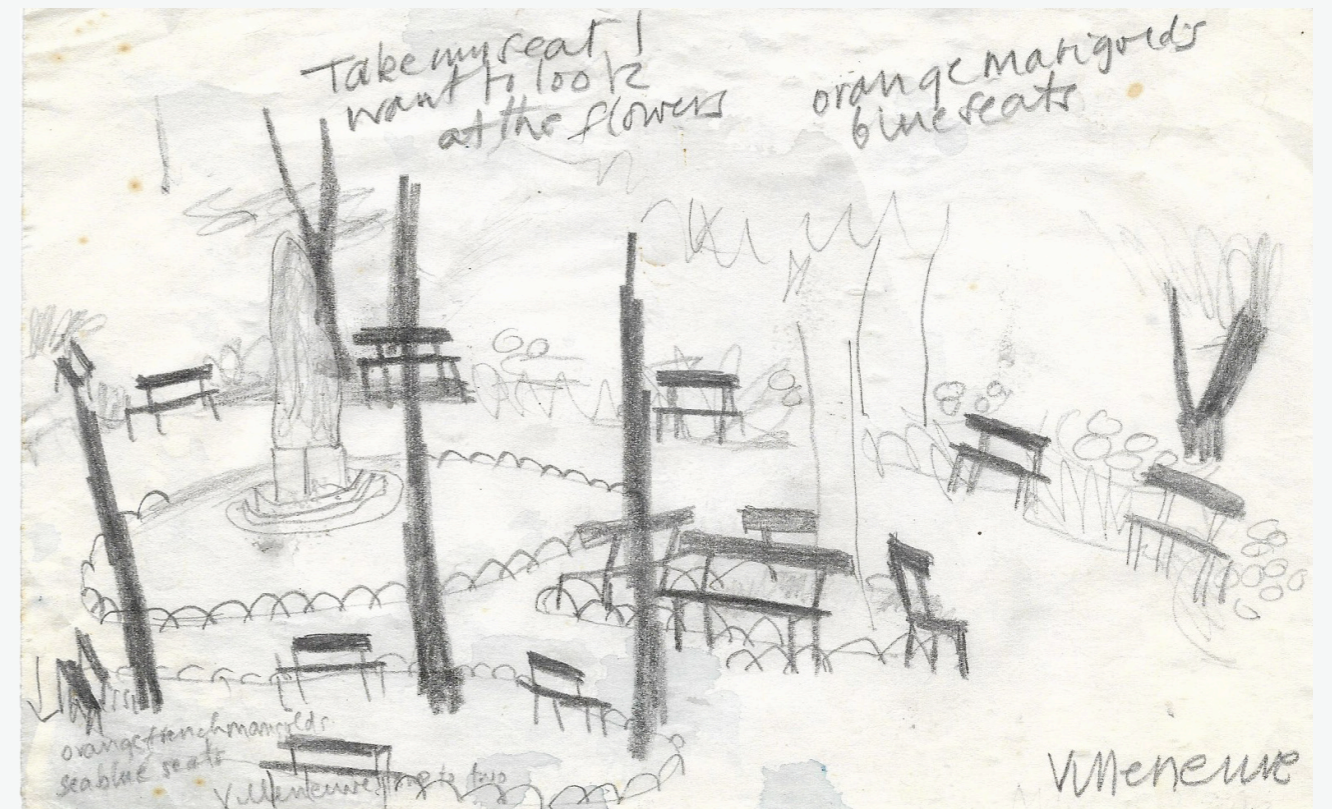 Take my seat I
want to look
at the flowers
orange marigolds
blue seats
orange french marigolds
sea blue seats
Villeneuve to two
Villeneuve